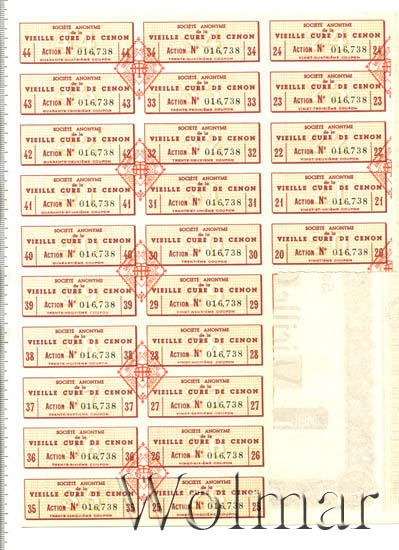 SOCIÉTÉ ANONYME
de la
VIEILLE CURE DE CENON
44 ACTION N° 016,738 44
QUARANTE-QUATRIÈME COUPON
SOCIÉTÉ ANONYME
de la
VIEILLE CURE DE CENON
43 ACTION N° 016,738 43
QUARANTE-TROISIÈME COUPON
SOCIÉTÉ ANONYME
de la
VIEILLE CURE DE CENON
42 ACTION N° 016,738 42
QUARANTE-DEUXIÈME COUPON
SOCIÉTÉ ANONYME
de la
VIEILLE CURE DE CENON
41 ACTION N° 016,738 41
QUARANTE-ET-UNIÈME COUPON
SOCIÉTÉ ANONYME
de la
VIEILLE CURE DE CENON
40 ACTION N° 016,738 40
QUARANTIÈME COUPON
SOCIÉTÉ ANONYME
de la
VIEILLE CURE DE CENON
39 ACTION N° 016,738 39
TRENTE-NEUVIÈME COUPON
SOCIÉTÉ ANONYME
de la
VIEILLE CURE DE CENON
38 ACTION N° 016,738 38
TRENTE-HUITIÈME COUPON
SOCIÉTÉ ANONYME
de la
VIEILLE CURE DE CENON
37 ACTION N° 016,738 37
TRENTE-SEPTIÈME COUPON
SOCIÉTÉ ANONYME
de la
VIEILLE CURE DE CENON
36 ACTION N° 016,738 36
TRENTE-SIXIÈME COUPON
SOCIÉTÉ ANONYME
de la
VIEILLE CURE DE CENON
35 ACTION N° 016,738 35
SOCIÉTÉ ANONYME
de la
VIEILLE CURE DE CENON
34 ACTION N° 016,738 34
TRENTE-QUATRIÈME COUPON
SOCIÉTÉ ANONYME
de la
VIEILLE CURE DE CENON
33 ACTION N° 016,738 33
TRENTE-TROISIÈME COUPON
SOCIÉTÉ ANONYME
de la
VIEILLE CURE DE CENON
32 ACTION N° 016,738 32
TRENTE-DEUXIÈME COUPON
SOCIÉTÉ ANONYME
de la
VIEILLE CURE DE CENON
31 ACTION N° 016,738 31
TRENTE-ET-UNIÈME COUPON
SOCIÉTÉ ANONYME
de la
VIEILLE CURE DE CENON
30 ACTION N° 016,738 30
TRENTIÈME COUPON
SOCIÉTÉ ANONYME
de la
VIEILLE CURE DE CENON
29 ACTION N° 016,738 29
VINGT-NEUVIÈME COUPON
SOCIÉTÉ ANONYME
de la
VIEILLE CURE DE CENON
28 ACTION N° 016,738 28
VINGT-HUITIÈME COUPON
SOCIÉTÉ ANONYME
de la
VIEILLE CURE DE CENON
27 ACTION N° 016,738 27
VINGT-SEPTIÈME COUPON
SOCIÉTÉ ANONYME
de la
VIEILLE CURE DE CENON
26 ACTION N° 016,738 26
VINGT-SIXIÈME COUPON
SOCIÉTÉ ANONYME
de la
VIEILLE CURE DE CENON
25 ACTION N° 016,738 25
SOCIÉTÉ ANONYME
de la
VIEILLE CURE DE CENON
24 ACTION N° 016,738 24
VINGT-QUATRIÈME COUPON
SOCIÉTÉ ANONYME
de la
VIEILLE CURE DE CENON
23 ACTION N° 016,738 23
VINGT-TROISIÈME COUPON
SOCIÉTÉ ANONYME
de la
VIEILLE CURE DE CENON
22 ACTION N° 016,738 22
VINGT-DEUXIÈME COUPON
SOCIÉTÉ ANONYME
de la
VIEILLE CURE DE CENON
21 ACTION N° 016,738 21
VINGT-ET-UNIÈME COUPON
SOCIÉTÉ ANONYME
de la
VIEILLE CURE DE CENON
20 ACTION N° 016,738 20
VINGTIÈME COUPON
Wolmar